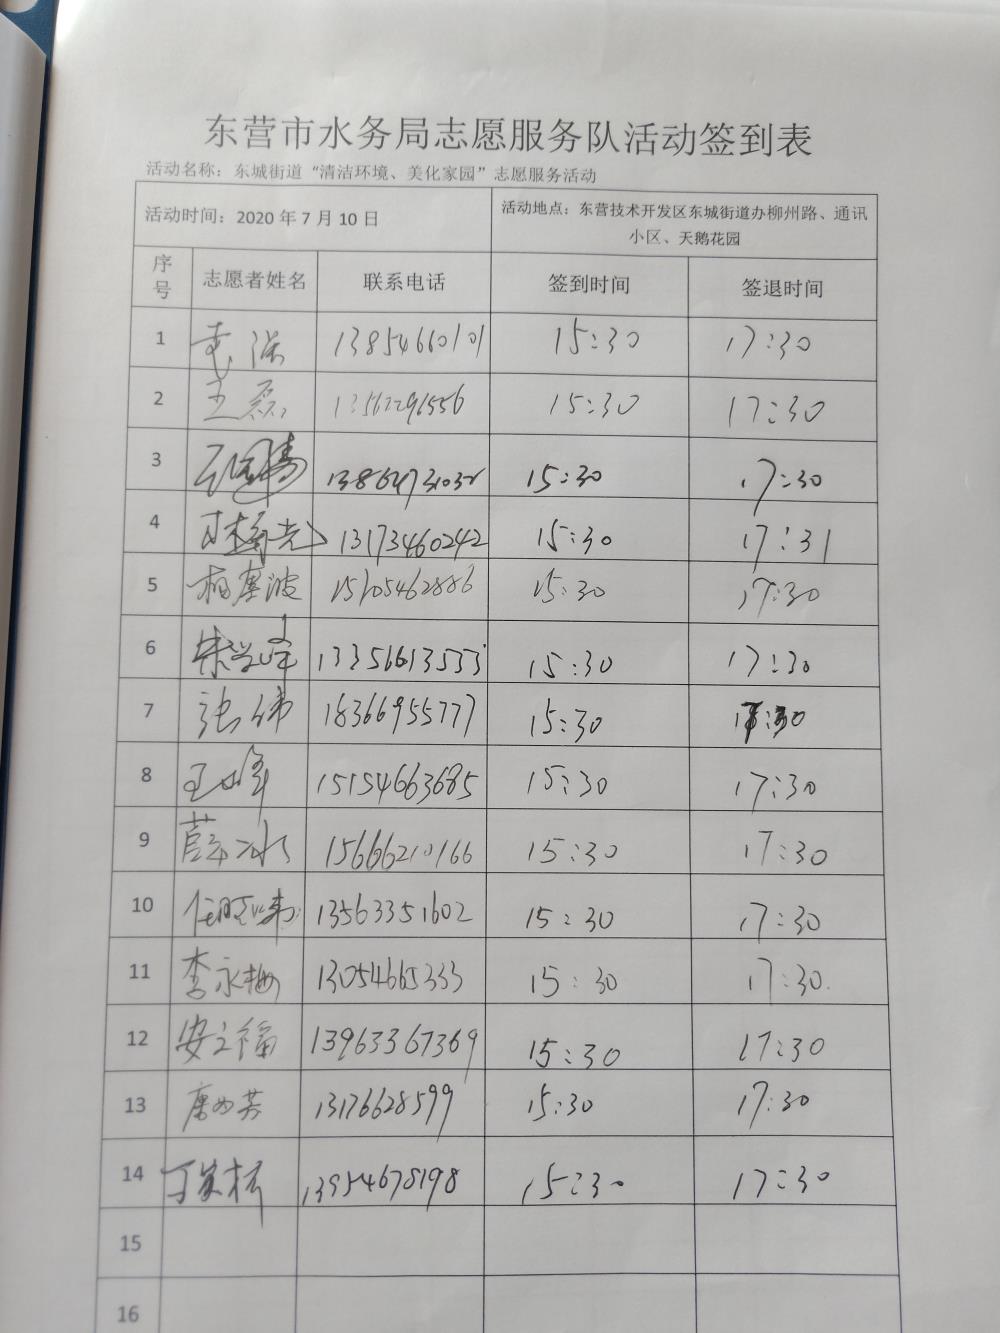 东营市水务局志愿服务队活动签到表
活动名称：东城街道“清洁环境、美化家园”志愿服务活动
活动时间：2020 年 7 月 10 日
活动地点：东营技术开发区东城街道办柳州路、通讯
小区、天鹅花园
序号 志愿者姓名 联系电话 签到时间 签退时间
1 13854660101 15:30 17:30
2 王磊 15:30 17:30
3 15:30 17:30
4 13173460242 15:30 17:31
5 15105462886 15:30 17:30
6 宋学峰 13356613533 15:30 17:30
7 张伟 18366955777 15:30 17:30
8 15154663685 15:30 17:30
9 薛冰 15666210166 15:30 17:30
10 13563351602 15:30 17:30
11 李永梅 13054665333 15:30 17:30
12 安立福 13963367369 15:30 17:30
13 13176628599 15:30 17:30
14 13954678198 15:30 17:30
15
16